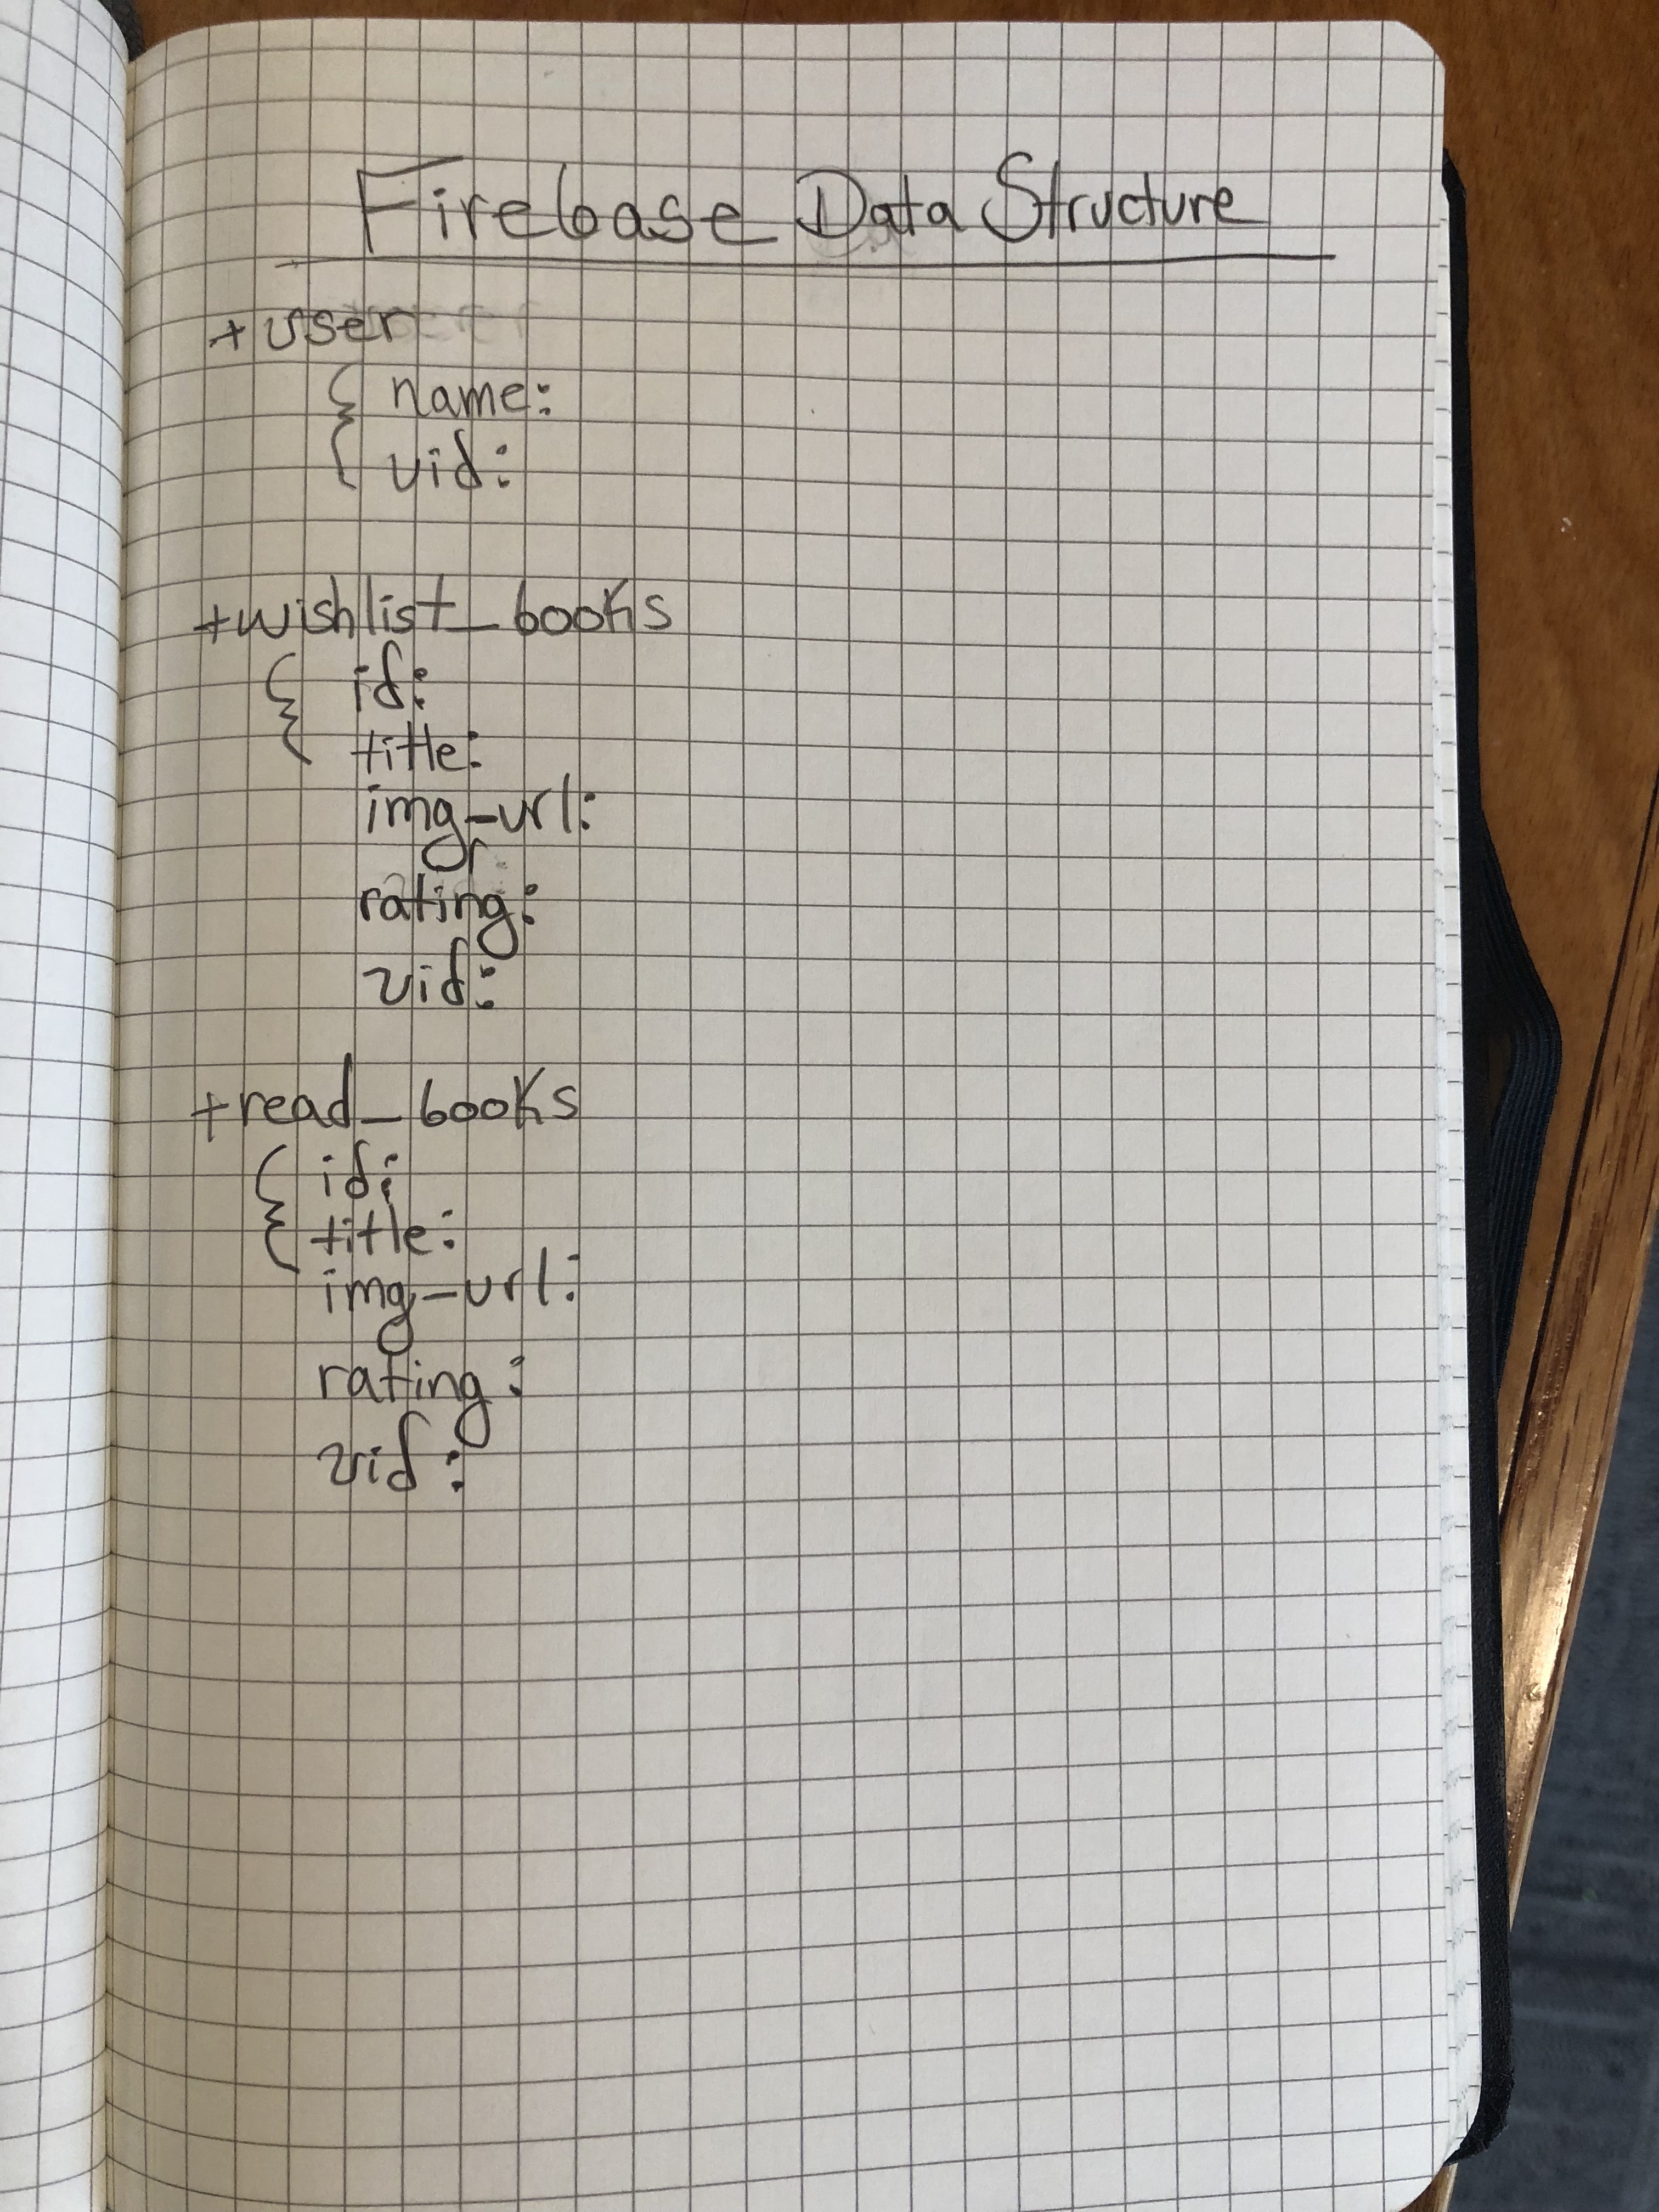 Firebase Data Structure
+ user
{ name:
uid:
+wishlist_books
{ id:
title:
img-url:
rating:
uid:
+read_books
{ id:
title:
img-url:
rating:
uid: